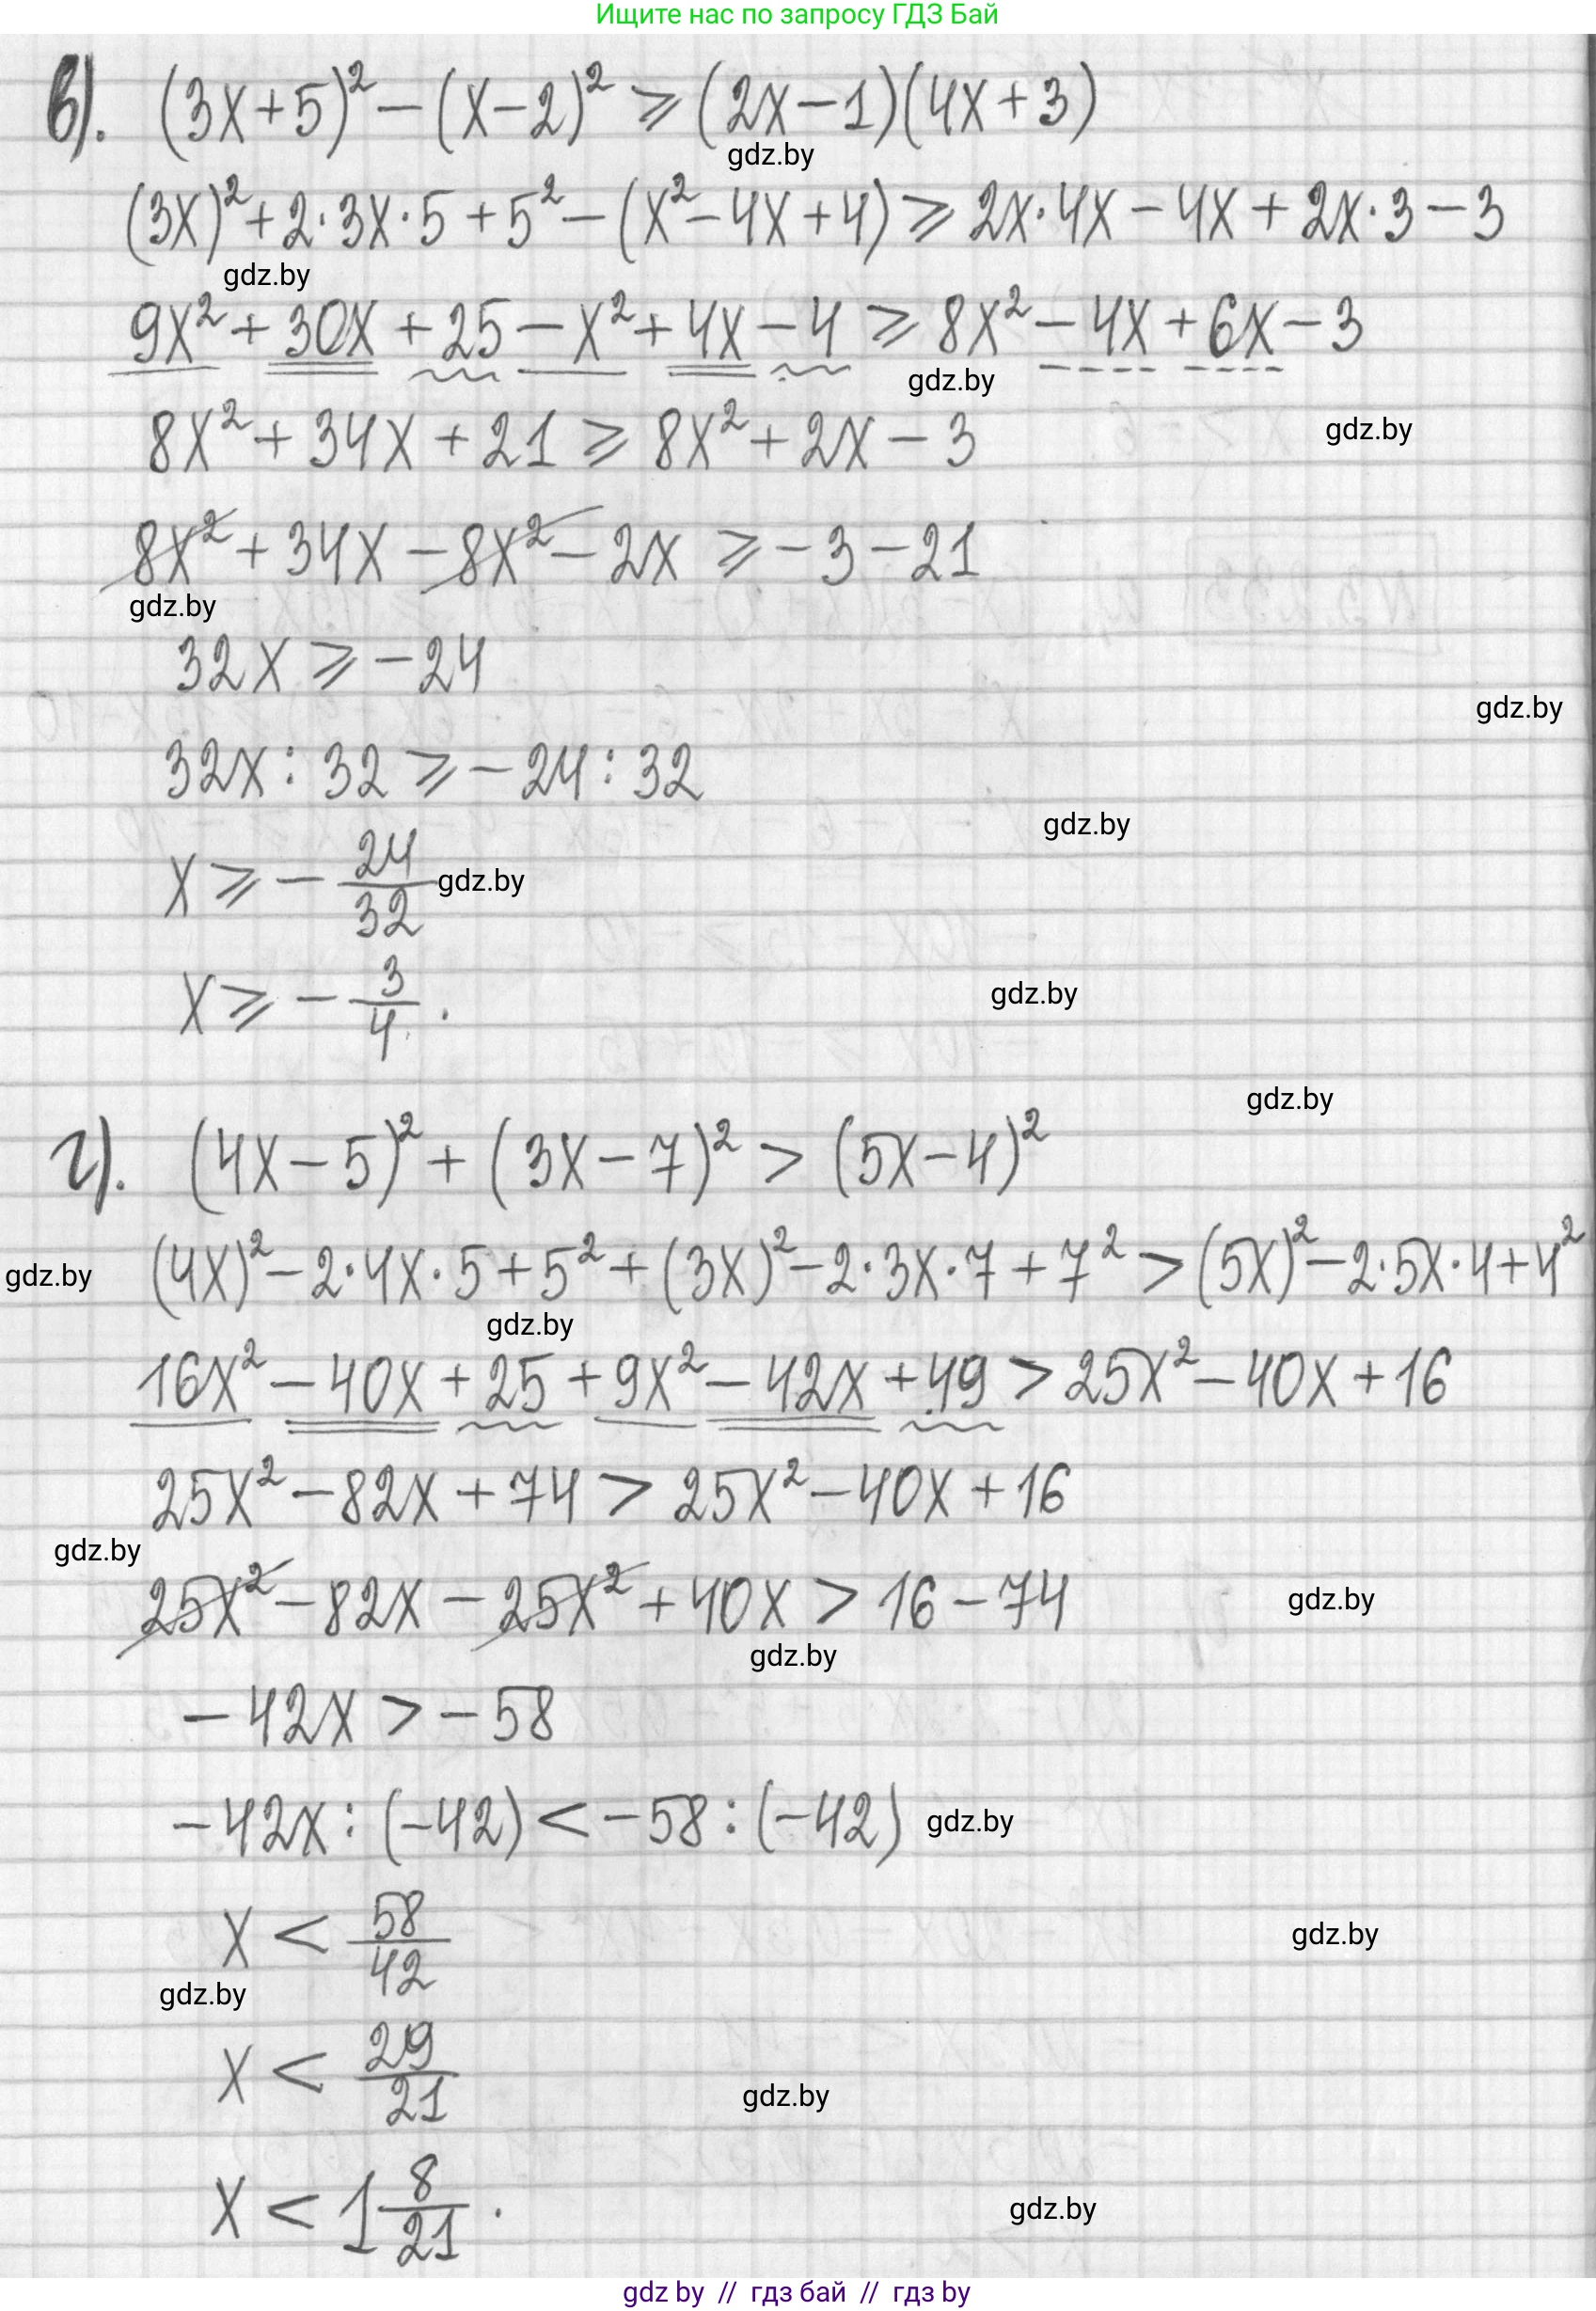 Ищите нас по запросу ГДЗ Бай
в). (3x+5)² − (x−2)² ⩾ (2x−1)(4x+3)
gdz.by
(3x)² + 2·3x·5 + 5² − (x² − 4x + 4) ⩾ 2x·4x − 4x + 2x·3 − 3
gdz.by
9x² + 30x + 25 − x² + 4x − 4 ⩾ 8x² − 4x + 6x − 3
gdz.by
8x² + 34x + 21 ⩾ 8x² + 2x − 3
gdz.by
8x² + 34x − 8x² − 2x ⩾ −3 − 21
gdz.by
32x ⩾ −24
gdz.by
32x : 32 ⩾ −24 : 32
gdz.by
x ⩾ − 24/32
gdz.by
x ⩾ − 3/4 .
gdz.by
gdz.by
г). (4x−5)² + (3x−7)² > (5x−4)²
(4x)² − 2·4x·5 + 5² + (3x)² − 2·3x·7 + 7² > (5x)² − 2·5x·4 + 4²
gdz.by
gdz.by
16x² − 40x + 25 + 9x² − 42x + 49 > 25x² − 40x + 16
25x² − 82x + 74 > 25x² − 40x + 16
gdz.by
25x² − 82x − 25x² + 40x > 16 − 74
gdz.by
gdz.by
−42x > −58
−42x : (−42) < −58 : (−42)
gdz.by
x < 58/42
gdz.by
gdz.by
x < 29/21
gdz.by
x < 1 8/21 .
gdz.by
gdz by // гдз бай // гдз by